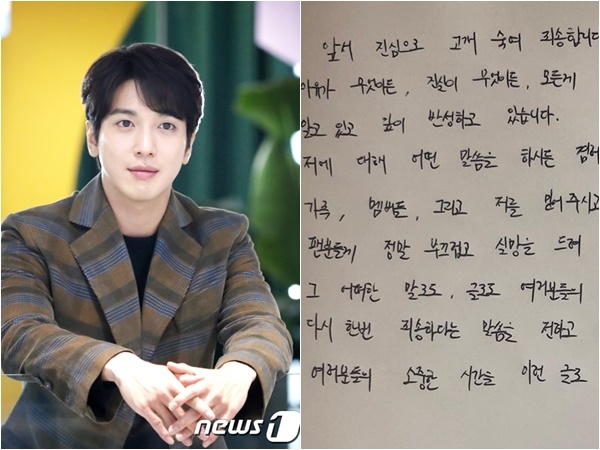 앞서 진심으로 고개 숙여 죄송합니다
이유가 무엇이든, 진실이 무엇이든, 모든게
알고 있고 깊이 반성하고 있습니다.
저에 대해 어떤 말씀을 하시든 겸허
가족, 멤버들, 그리고 저를 믿어 주시고
팬분들께 정말 부끄럽고 실망을 드려
그 어떠한 말로도, 글로도 여러분들의
다시 한번 죄송하다는 말씀을 전하고
여러분들의 소중한 시간을 이런 글로
news1